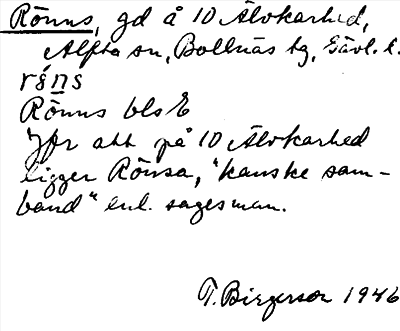 Rönns, gd å 10 Älvkarhed,
Alfta sn, Bollnäs tg, Gävl. l.
rǿns
Rönns bls E
Jfr att på 10 Älvkarhed
ligger Rönsa, "kanske sam-
band" enl. sagesman.
T. Birgerson 1946